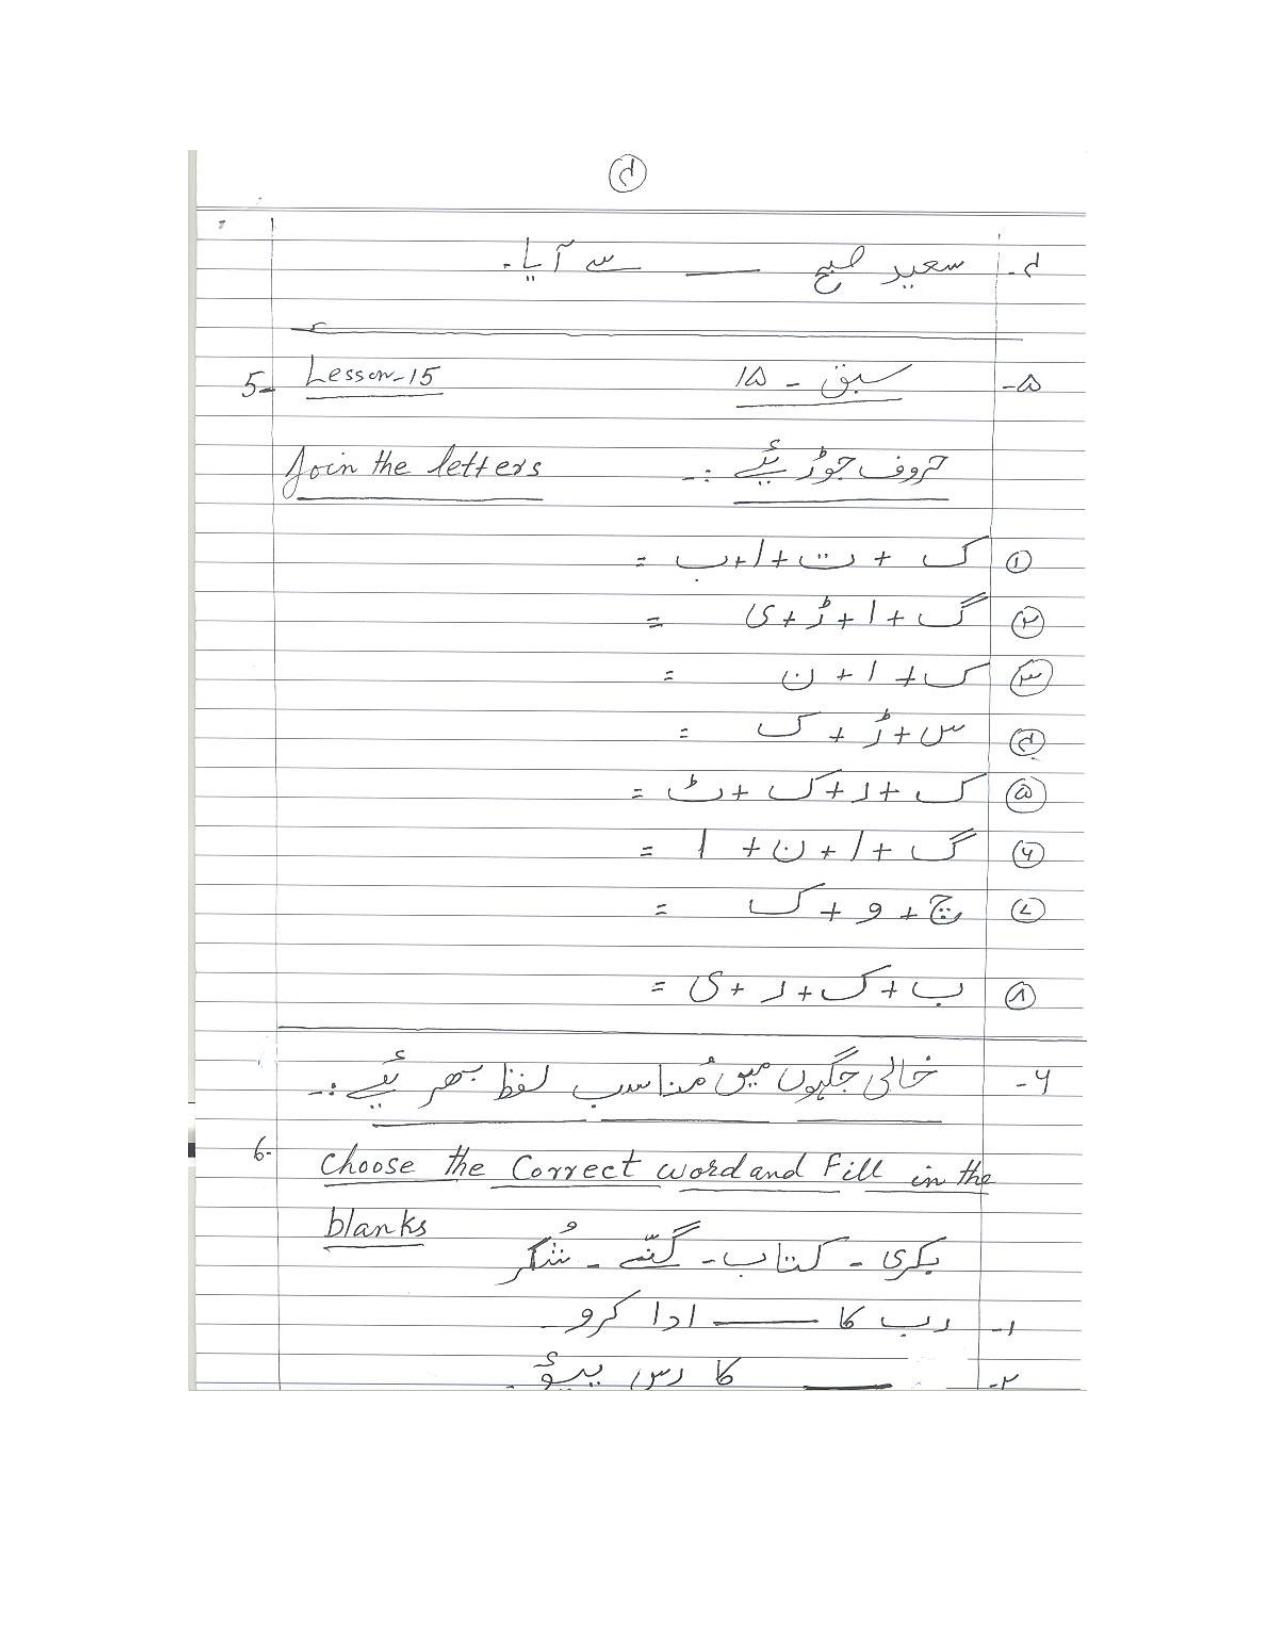 ۴
۴- سعید صبح ___ سے آیا۔
5- Lesson-15 سبق - ۱۵ ۵-
Join the letters حروف جوڑیئے :-
۱ ک + ت + ا + ب =
۲ گ + ا + ڑ + ی =
۳ ک + ا + ن =
۴ س + ڑ + ک =
۵ ک + ر + ک + ٹ =
۶ گ + ا + ن + ا =
۷ چ + و + ک =
۸ ب + ک + ر + ی =
۶- خالی جگہوں میں مُناسب لفظ بھریئے :-
6- Choose the Correct word and Fill in the
blanks
بکری - کتاب - گنّے - شُکر
۱- رب کا ___ ادا کرو۔
۲- ___ کا رس پیئو۔